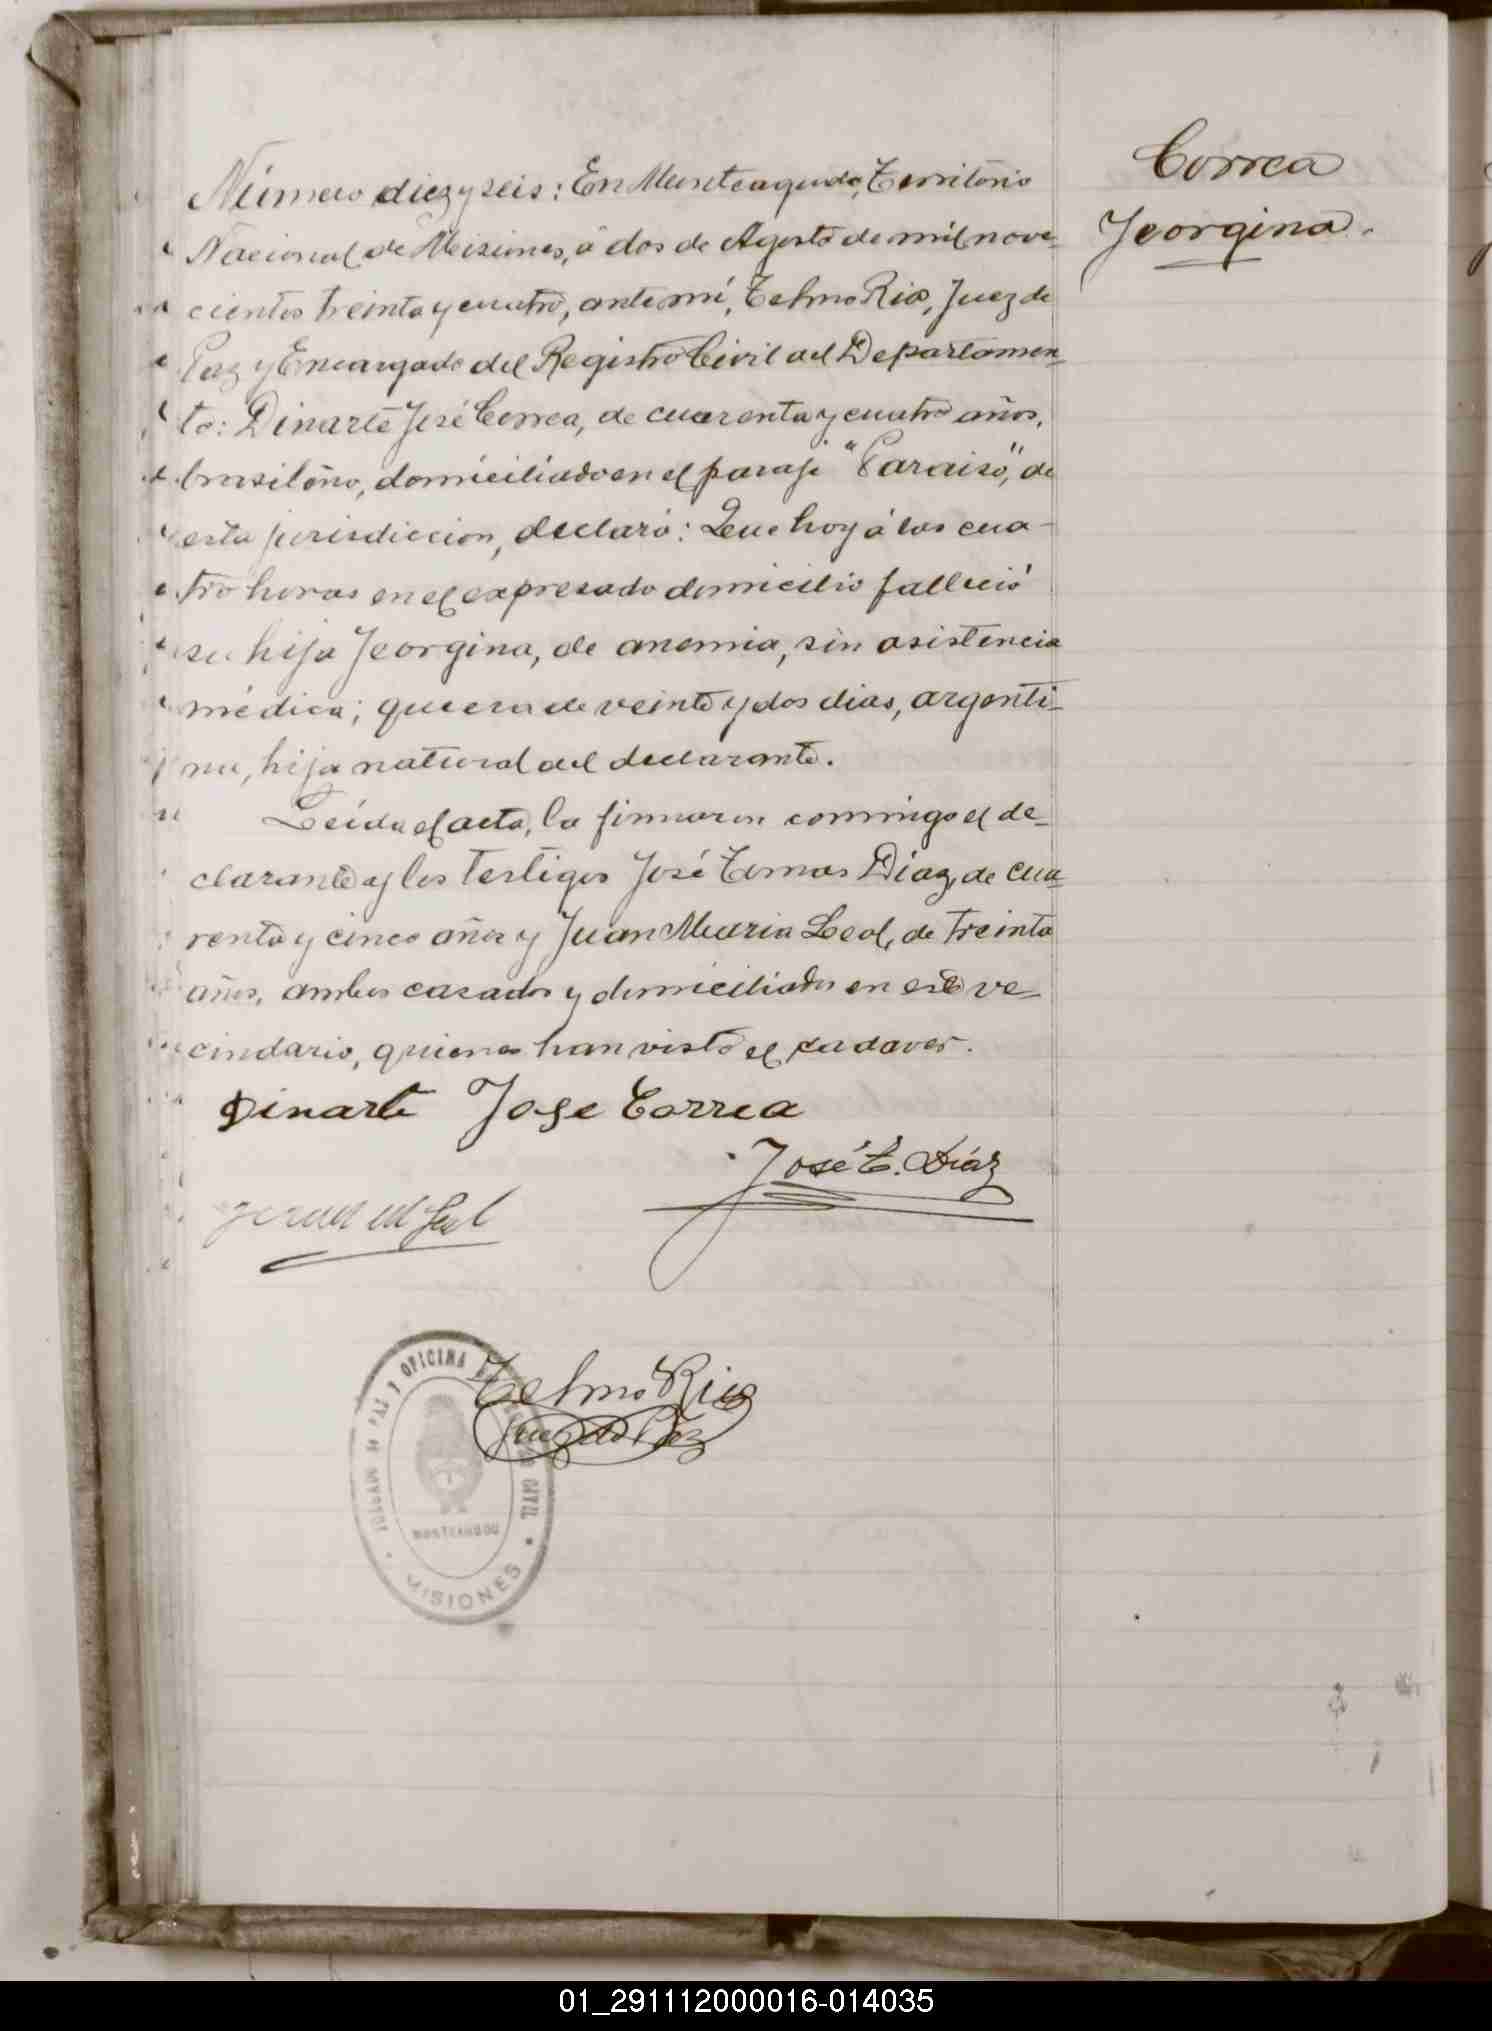 Correa
Jeorgina.
Número diez y seis: En Monteagudo, Territorio
Nacional de Misiones, á dos de Agosto de mil nove-
cientos treinta y cuatro, ante mí, Telmo Rios, Juez de
Paz y Encargado del Registro Civil del Departamen-
to: Dinarte José Correa, de cuarenta y cuatro años,
brasileño, domiciliado en el paraje "Paraiso", de
esta jurisdiccion, declaró: Que hoy á las cua-
tro horas en el expresado domicilio falleció
su hija Jeorgina, de anemia, sin asistencia
médica; que era de veinte y dos dias, argenti-
na, hija natural del declarante.
Leída el acta, la firmaron conmigo el de-
clarante y los testigos José Tomas Diaz, de cua-
renta y cinco años y Juan Maria Leal, de treinta
años, ambos casados y domiciliados en este ve-
cindario, quienes han visto el cadaver.
Dinarte Jose Correa
José T. Díaz
Juan M Leal
Telmo Rios
Juez de Paz
JUZGADO DE PAZ Y OFICINA DE REGISTRO CIVIL
MONTEAGUDO
MISIONES
01_291112000016-014035